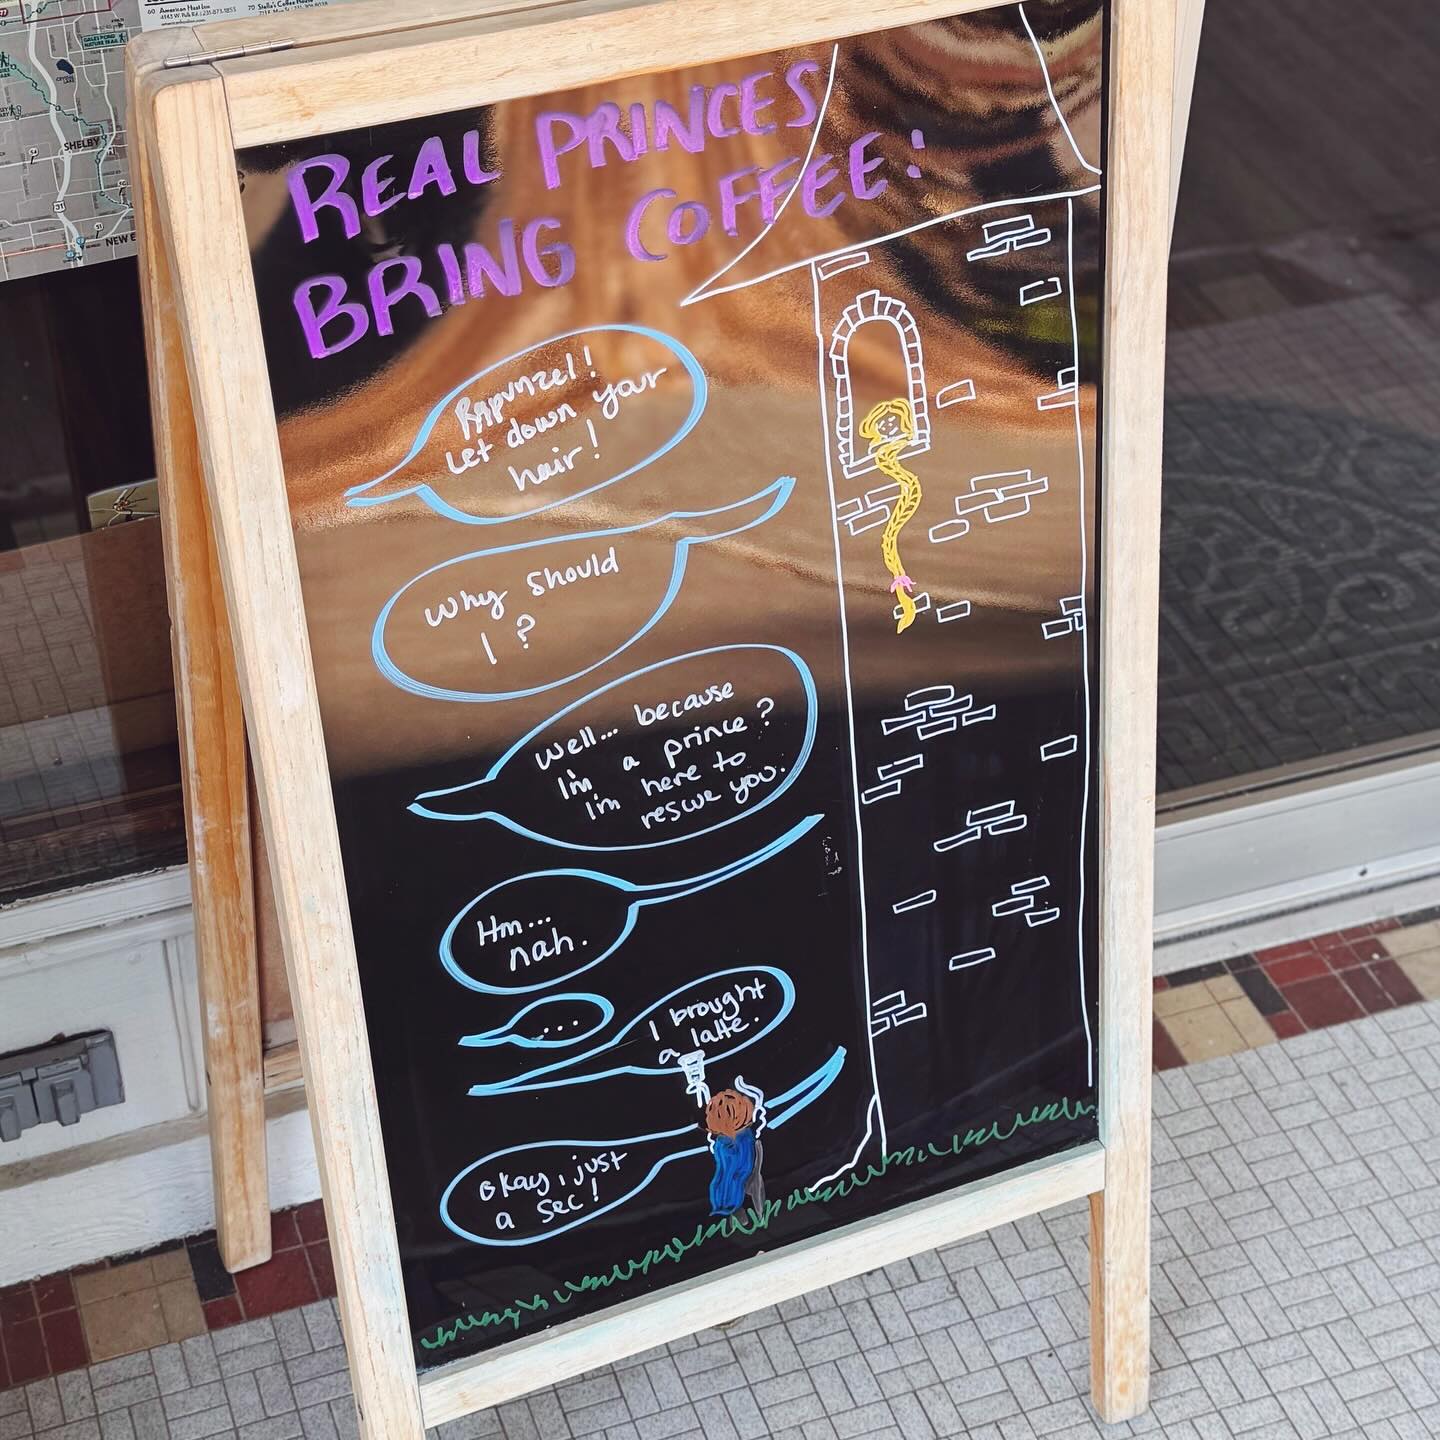 60 American Host Inn
70 Stella's Coffee
SHELBY
31
NEW E
REAL PRINCES
BRING COFFEE!
Rapunzel!
Let down your
hair!
Why should
I?
Well... because
I'm a prince?
I'm here to
rescue you.
Hm...
nah.
...
I brought
a latte.
Okay, just
a sec!